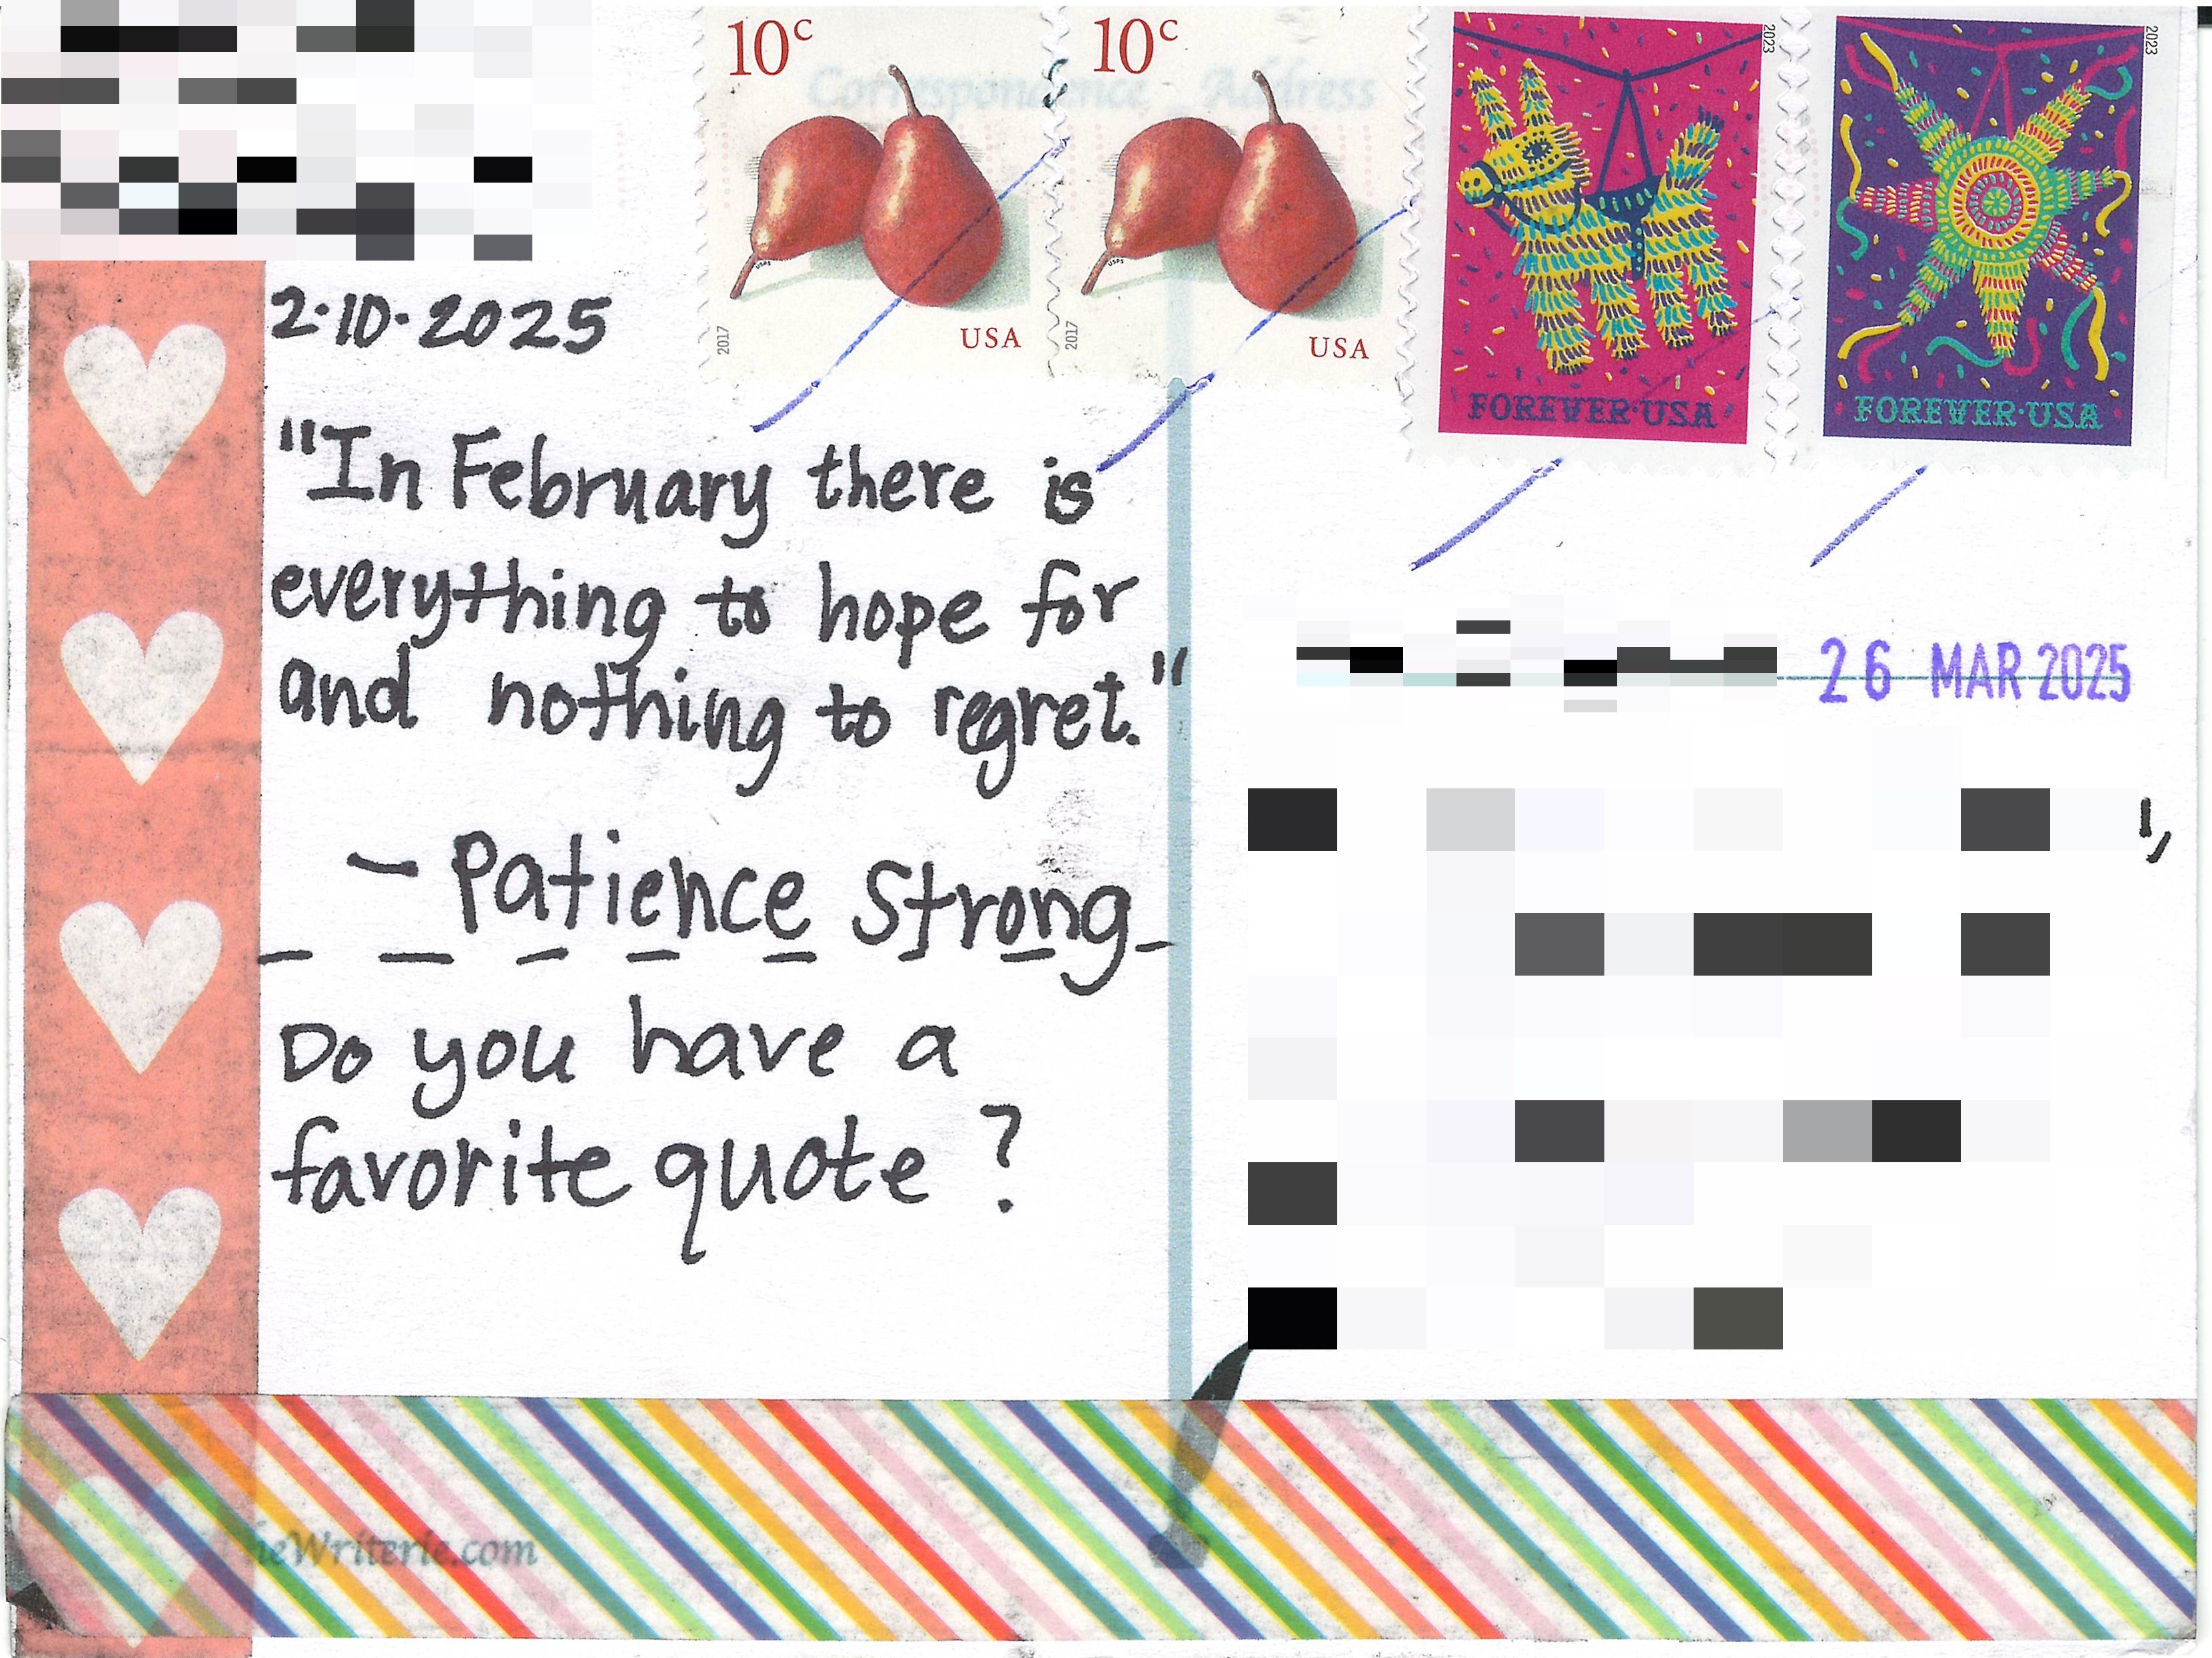 10c
10c
Correspondence Address
2023
2023
USPS
USPS
2017
USA
2017
USA
FOREVER·USA
FOREVER·USA
2·10·2025
"In February there is
everything to hope for
and nothing to regret."
- Patience Strong
Do you have a
favorite quote?
26 MAR 2025
heWriterle.com